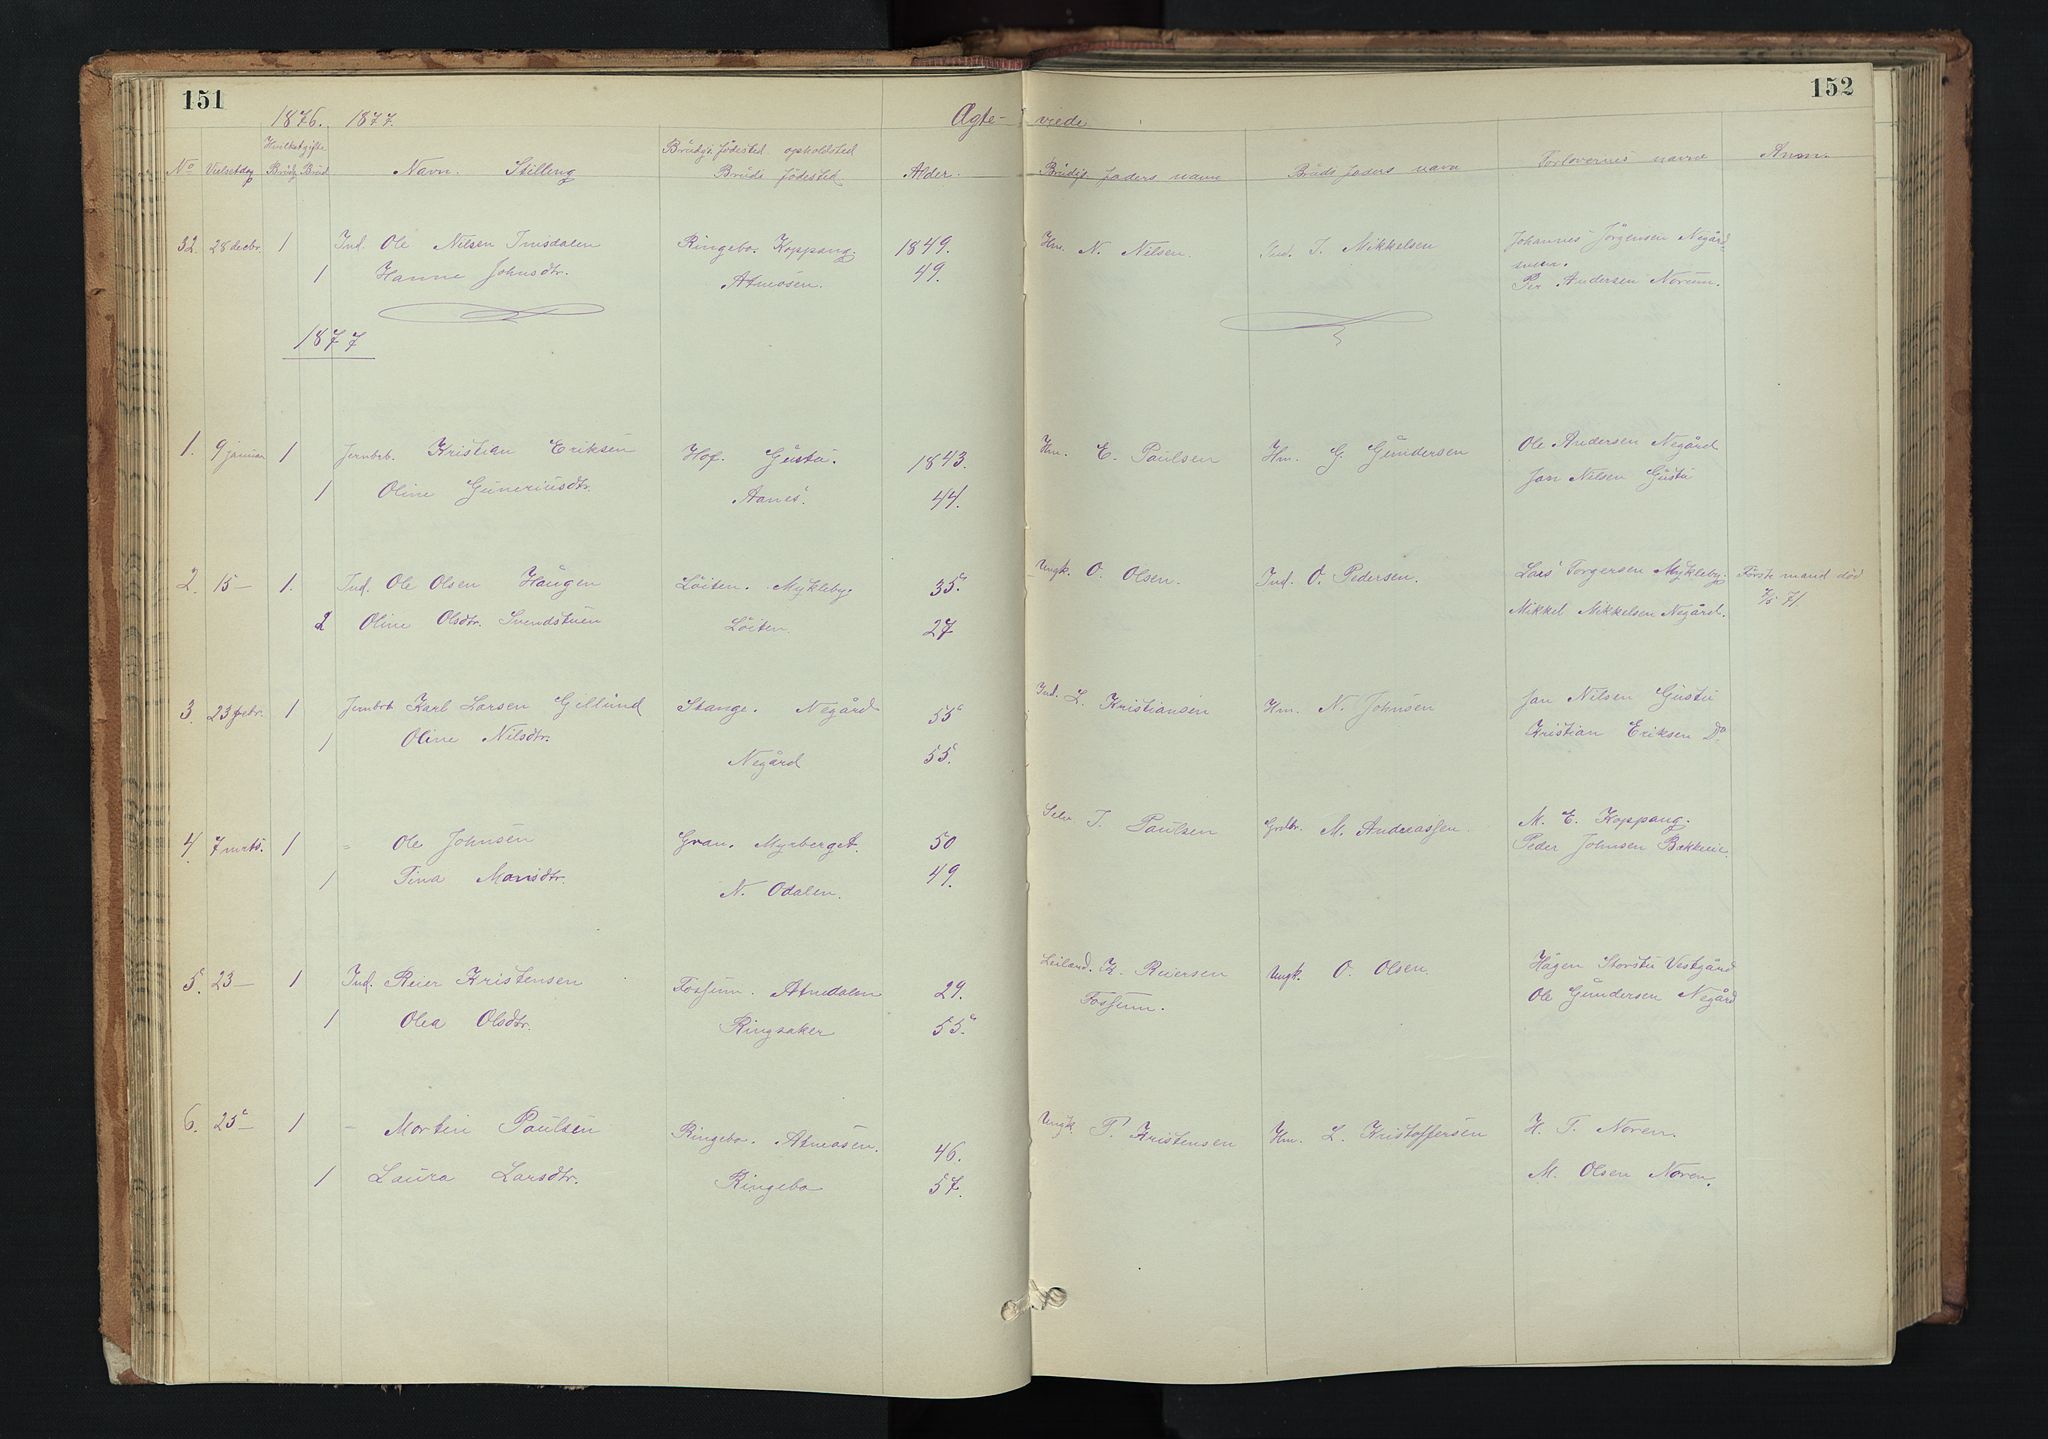 151
152
1876. 1877.
Ægte- viede
No Vielsesdag Hvilket gifte Brudg Brud Navn. Stilling Brudgs. födested opholdsted Bruds födested Alder. Brudgs faders navn Bruds faders navn Forlovernes navne Anm.
32. 28 decbr. 1 Ind. Ole Nilsen Ringebo. Koppang. 1849. Hm. N. Nilsen. Ind. J. Mikkelsen Johannes Jörgensen Negård
svem.
1 Hanne Johnsdtr. Atneosen. 49. Per Andersen Norum.
1877
1. 9 januar 1 Jernbrb. Kristian Eriksen Hof. Gústú. 1843. Hm. E. Paulsen Hm. G. Gúndersen Ole Andersen Negård
1 Oline Guneriusdtr. Aanes. 44. Jon Nilsen Gústú
2. 15 — 1. Ind. Ole Olsen Haugen Löiten. Mykleby. 35. Ungk. O. Olsen. Ind. O. Pedersen. Lars Torgersen Mykleby. Förste mand död
7/5 71.
2 Oline Olsdtr. Svendstuen Löiten. 27 Mikkel Mikkelsen Negård.
3. 23 febr. 1 Jernbrb Karl Larsen Gillúnd Stange. Negård 55 Ind. L. Kristiansen Hm. N. Johnsen Jon Nilsen Gústú
1 Oline Nilsdtr. Negård 55. Kristian Eriksen Do
4. 7 mrts. 1 - Ole Johnsen Gran. Myrberget. 50 Selv. J. Paulsen Grdbr. M. Andreassen. M. E. Koppang.
1 Tina Monsdtr. N. Odalen. 49. Peder Johnsen Bakkeie.
5. 23 — 1 Ind. Reier Kristensen Fossum. Atnedalen 29. Leiland. K. Reiersen Ungk. O. Olsen. Hågen Storstú Vestgård
Fossum.
1 Olea Olsdtr. Ringsaker 55. Ole Gúndersen Negård
6. 25 — 1 - Morten Paúlsen Ringebo. Atneosen. 46. Ungk. P. Kristensen Hm. L. Kristoffersen H. T. Noren.
1 Laura Larsdtr. Ringebo 57. M. Olsen Noren.